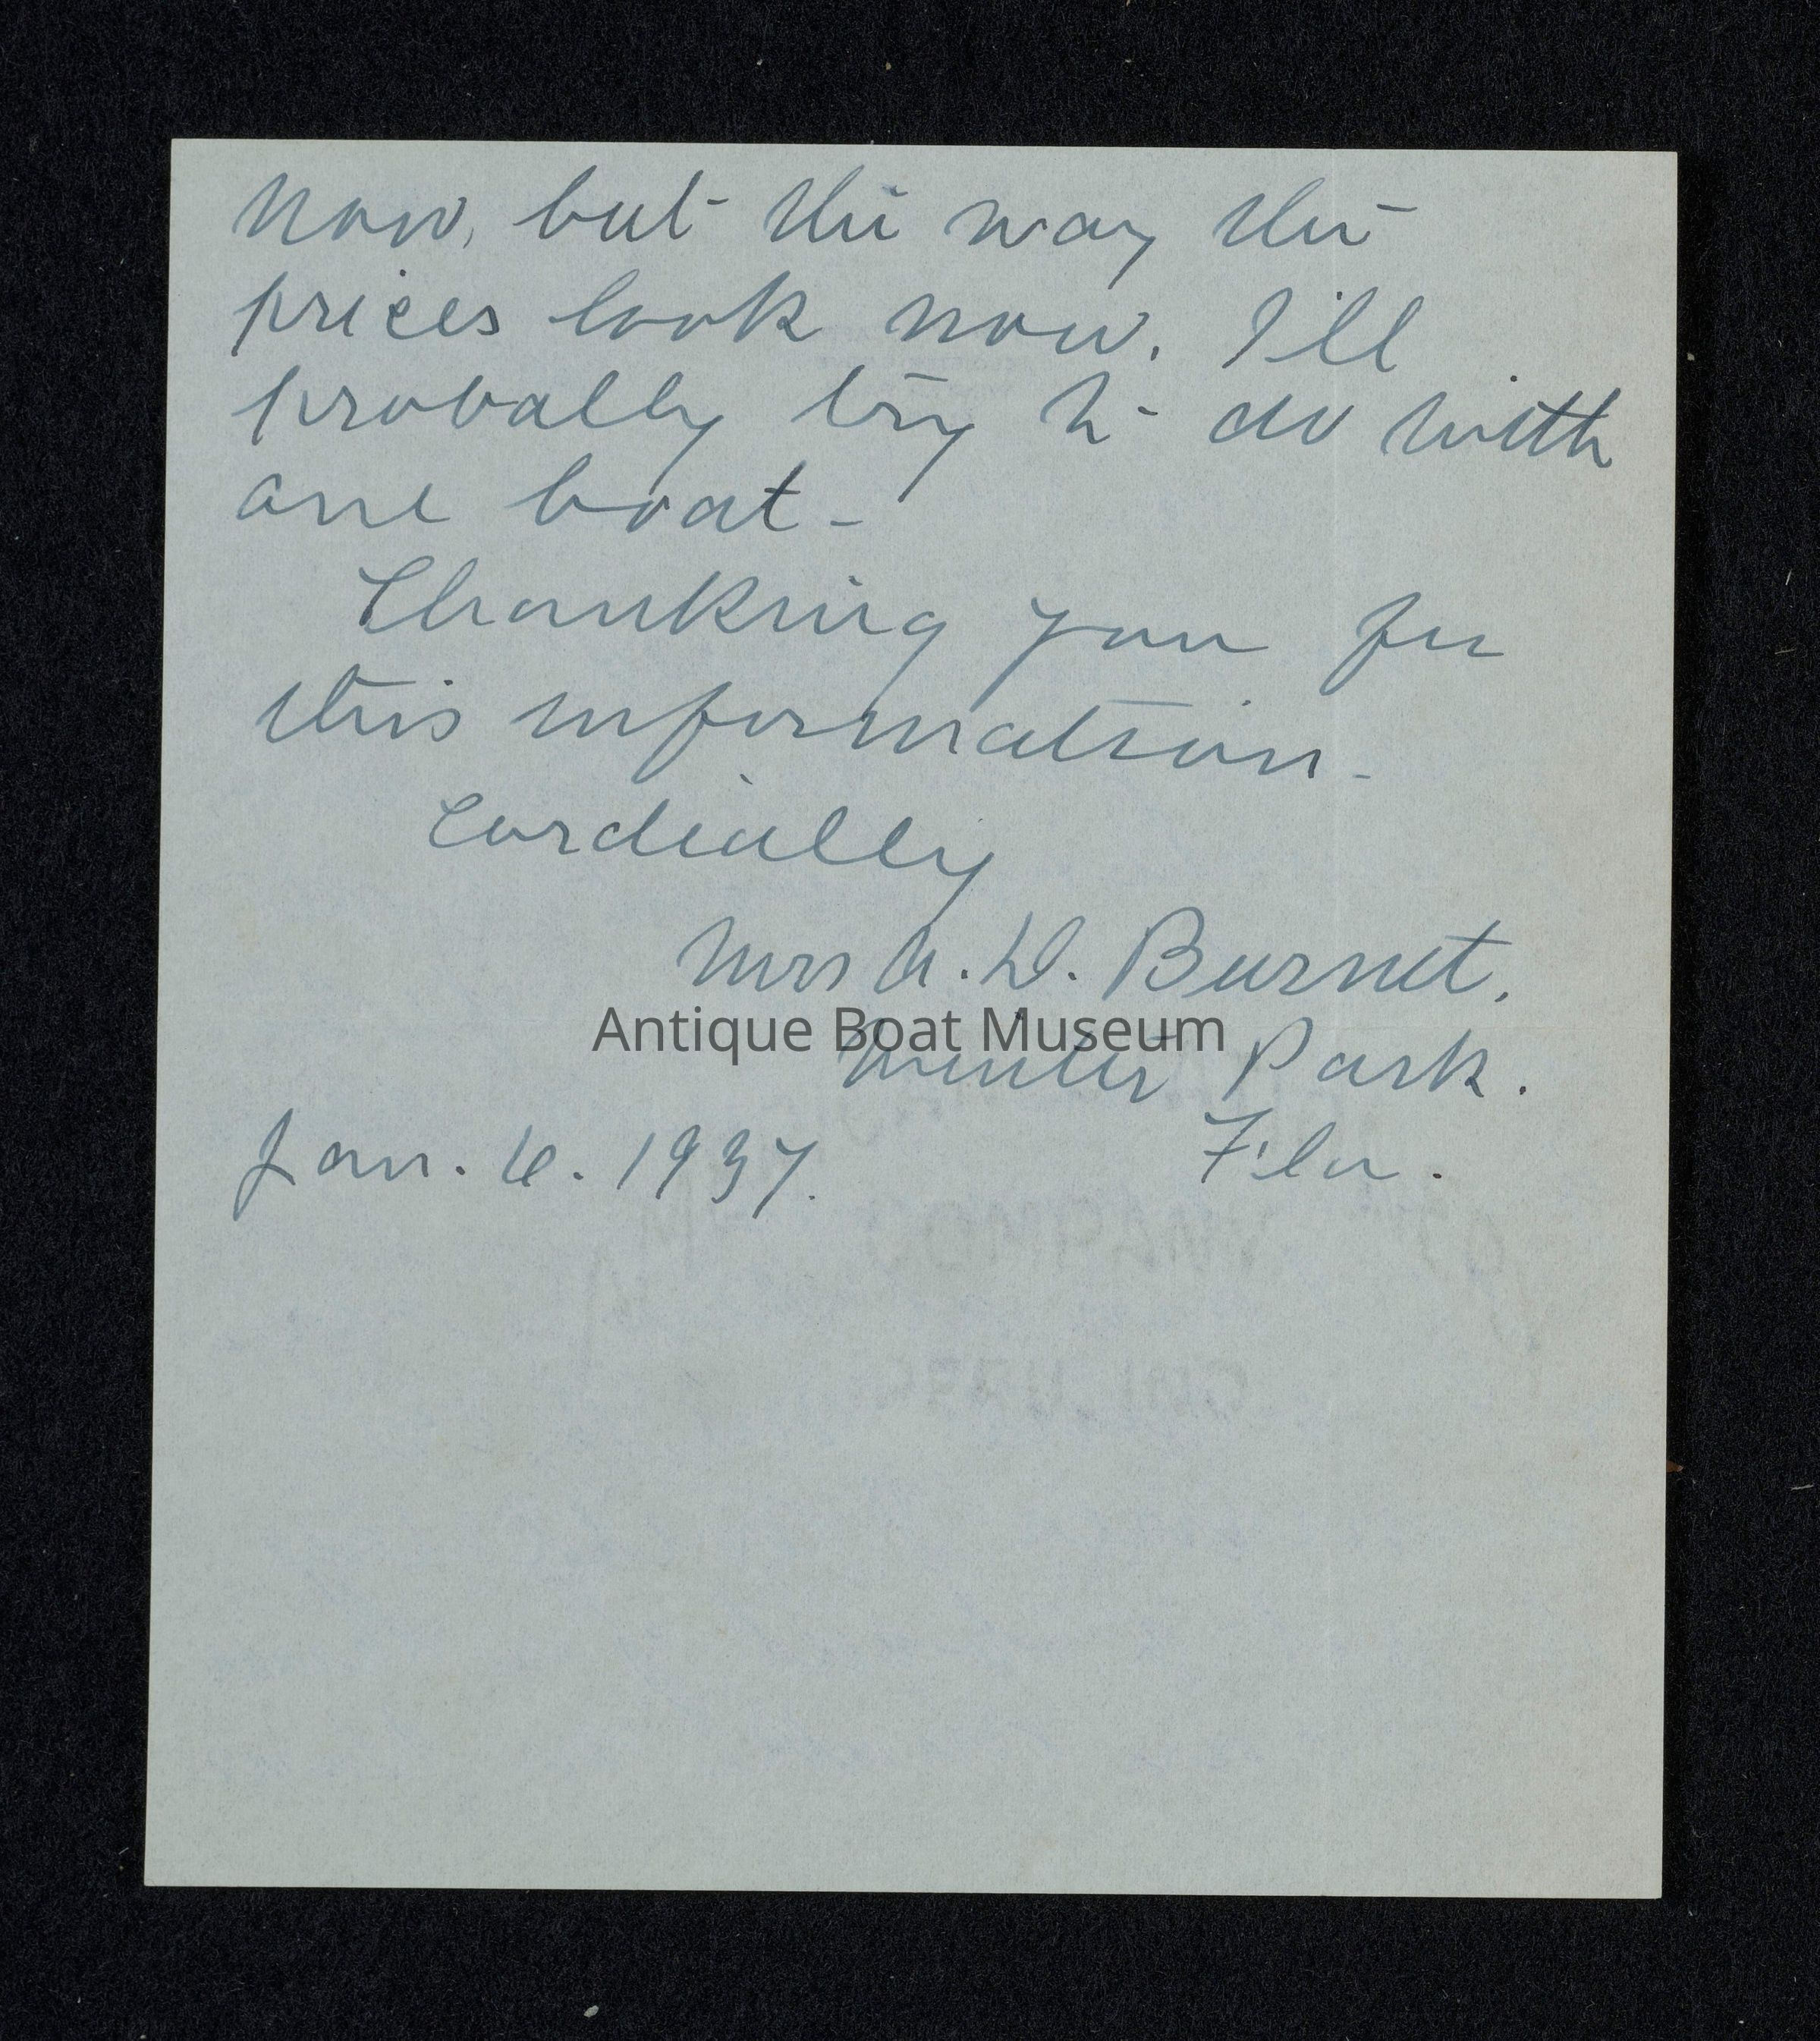 now, but the way the
prices look now. I'll
probably try to do with
one boat -
Thanking you for
this information -
Cordially
Mrs A. D. Burnet.
Antique Boat Museum
Winter Park.
Jan. 6. 1937. Fla.